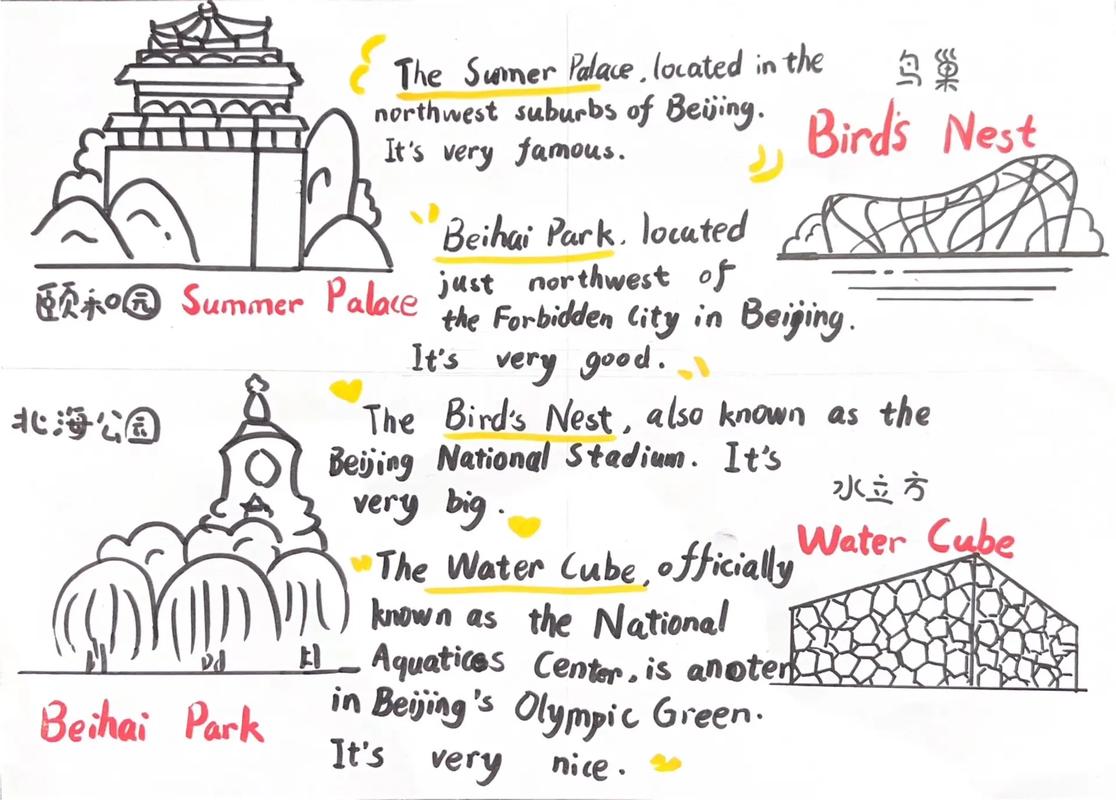 The Sumer Palace, located in the
northwest suburbs of Beijing.
It's very famous.
鸟巢
Bird's Nest
颐和园 Summer Palace
Beihai Park, located
just northwest of
the Forbidden City in Beijing.
It's very good.
北海公园
Beihai Park
The Bird's Nest, also known as the
Beijing National Stadium. It's
very big.
水立方
Water Cube
The Water Cube, officially
known as the National
Aquatices Center, is anoter
in Beijing's Olympic Green.
It's very nice.